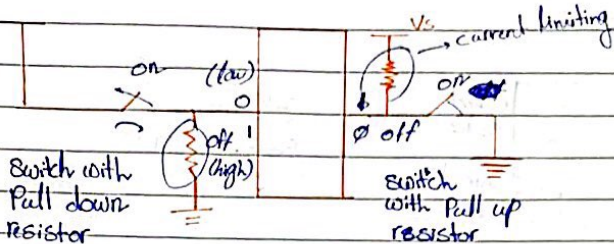 Vs
current limiting
on (low)
0
on
off 1
(high)
φ off
switch with
Pull down
resistor
switch
with Pull up
resistor